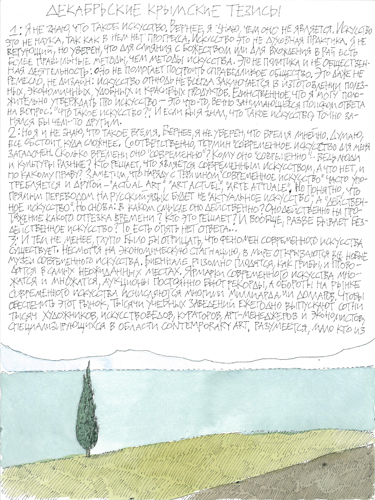 ДЕКАБРЬСКИЕ КРЫМСКИЕ ТЕЗИСЫ
1: Я НЕ ЗНАЮ, ЧТО ТАКОЕ ИСКУССТВО. ВЕРНЕЕ, Я ЗНАЮ, ЧЕМ ОНО НЕ ЯВЛЯЕТСЯ. ИСКУССТВО
ЭТО НЕ НАУКА, ТАК КАК В НЕМ НЕТ ПРОГРЕССА. ИСКУССТВО ЭТО НЕ ДУХОВНАЯ ПРАКТИКА. Я НЕ
ВЕРУЮЩИЙ, НО УВЕРЕН, ЧТО ДЛЯ СЛИЯНИЯ С БОЖЕСТВОМ ИЛИ ДЛЯ ВХОЖДЕНИЯ В РАЙ ЕСТЬ
БОЛЕЕ ПРАВИЛЬНЫЕ МЕТОДЫ, ЧЕМ МЕТОДЫ ИСКУССТВА. ЭТО НЕ ПОЛИТИКА И НЕ ОБЩЕСТВЕН-
НАЯ ДЕЯТЕЛЬНОСТЬ: ОНО НЕ ПОМОГАЕТ ПОСТРОИТЬ СПРАВЕДЛИВОЕ ОБЩЕСТВО. ЭТО ДАЖЕ НЕ
РЕМЕСЛО, НЕ ДИЗАЙН: ИСКУССТВО ОТНЮДЬ НЕ ВСЕГДА ЗАКЛЮЧАЕТСЯ В ИЗГОТОВЛЕНИИ ПОЛЕЗ-
НЫХ, ЭКОНОМИЧНЫХ, УДОБНЫХ И КРАСИВЫХ ПРОДУКТОВ. ЕДИНСТВЕННОЕ, ЧТО Я МОГУ ПОЛО-
ЖИТЕЛЬНО УТВЕРЖДАТЬ ПРО ИСКУССТВО - ЭТО ЧТО-ТО, ВЕЧНО ЗАНИМАЮЩЕЕСЯ ПОИСКОМ ОТВЕТА
НА ВОПРОС: "ЧТО ТАКОЕ ИСКУССТВО?", И ЕСЛИ БЫ Я ЗНАЛ, ЧТО ТАКОЕ ИСКУССТВО, ТОЧНО ЗА-
НЯЛСЯ БЫ ЧЕМ-ТО ДРУГИМ.
2: НО Я И НЕ ЗНАЮ, ЧТО ТАКОЕ ВРЕМЯ. ВЕРНЕЕ, Я НЕ УВЕРЕН, ЧТО ВРЕМЯ ЛИНЕЙНО. ДУМАЮ,
ВСЕ ОБСТОИТ КУДА СЛОЖНЕЕ. СООТВЕТСТВЕННО, ТЕРМИН "СОВРЕМЕННОЕ ИСКУССТВО" ДЛЯ МЕНЯ
ЗАГАДОЧЕН. СКОЛЬКО ВРЕМЕНИ ОНО "СОВРЕМЕННО"? КОМУ ОНО "СОВРЕМЕННО" - ВЕДЬ ЛЮДИ
И КУЛЬТУРЫ РАЗНЫЕ? КТО РЕШАЕТ, ЧТО ЯВЛЯЕТСЯ СОВРЕМЕННЫМ ИСКУССТВОМ, А ЧТО НЕТ, И
ПО КАКОМУ ПРАВУ? ЗАМЕТИМ, ЧТО НАРЯДУ С ТЕРМИНОМ "СОВРЕМЕННОЕ ИСКУССТВО" ЧАСТО УПО-
ТРЕБЛЯЕТСЯ И ДРУГОЙ - "ACTUAL ART", "ART ACTUEL", "ARTE ATTUALE". НО ПОНЯТНО, ЧТО
ПРЯМЫМ ПЕРЕВОДОМ НА РУССКИЙ ЯЗЫК БУДЕТ НЕ "АКТУАЛЬНОЕ ИСКУССТВО", А "ДЕЙСТВЕН-
НОЕ ИСКУССТВО". НО СНОВА: В КАКОМ СМЫСЛЕ ОНО ДЕЙСТВЕННО? ОНО ДЕЙСТВЕННО НА ПРО-
ТЯЖЕНИЕ КАКОГО ОТРЕЗКА ВРЕМЕНИ? КТО ЭТО РЕШАЕТ? И ВООБЩЕ, РАЗВЕ БЫВАЕТ БЕЗ-
ДЕЙСТВЕННОЕ ИСКУССТВО? ТО ЕСТЬ ОПЯТЬ НЕТ ОТВЕТА...
3: И ТЕМ НЕ МЕНЕЕ, ГЛУПО БЫЛО БЫ ОТРИЦАТЬ, ЧТО ФЕНОМЕН СОВРЕМЕННОГО ИСКУССТВА
СУЩЕСТВУЕТ. НЕСМОТРЯ НА ЭКОНОМИЧЕСКУЮ СТАГНАЦИЮ, В МИРЕ ОТКРЫВАЮТСЯ ВСЕ НОВЫЕ
МУЗЕИ СОВРЕМЕННОГО ИСКУССТВА. БИЕННАЛЕ, ТРИЕННАЛЕ ПЛОДЯТСЯ, КАК ГРИБЫ, И ПРОВО-
ДЯТСЯ В САМЫХ НЕОЖИДАННЫХ МЕСТАХ. ЯРМАРКИ СОВРЕМЕННОГО ИСКУССТВА МНО-
ЖАТСЯ И МНОЖАТСЯ, АУКЦИОНЫ ПОСТОЯННО БЬЮТ РЕКОРДЫ, А ОБОРОТЫ НА РЫНКЕ
СОВРЕМЕННОГО ИСКУССТВА ИСЧИСЛЯЮТСЯ МНОГИМИ МИЛЛИАРДАМИ ДОЛЛАРОВ. ЧТОБЫ
ОБЕСПЕЧИТЬ ЭТОТ РЫНОК, ТЫСЯЧИ УЧЕБНЫХ ЗАВЕДЕНИЙ ЕЖЕГОДНО ВЫПУСКАЮТ СОТНИ
ТЫСЯЧ ХУДОЖНИКОВ, ИСКУССТВОВЕДОВ, КУРАТОРОВ, АРТ-МЕНЕДЖЕРОВ И ЭКОНОМИСТОВ,
СПЕЦИАЛИЗИРУЮЩИХСЯ В ОБЛАСТИ CONTEMPORARY ART. РАЗУМЕЕТСЯ, МАЛО КТО ИЗ